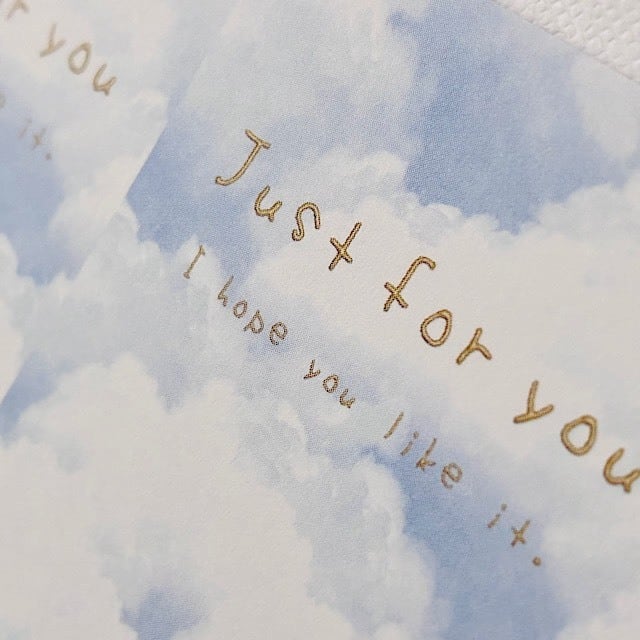 r you
it.
Just for you
I hope you like it.